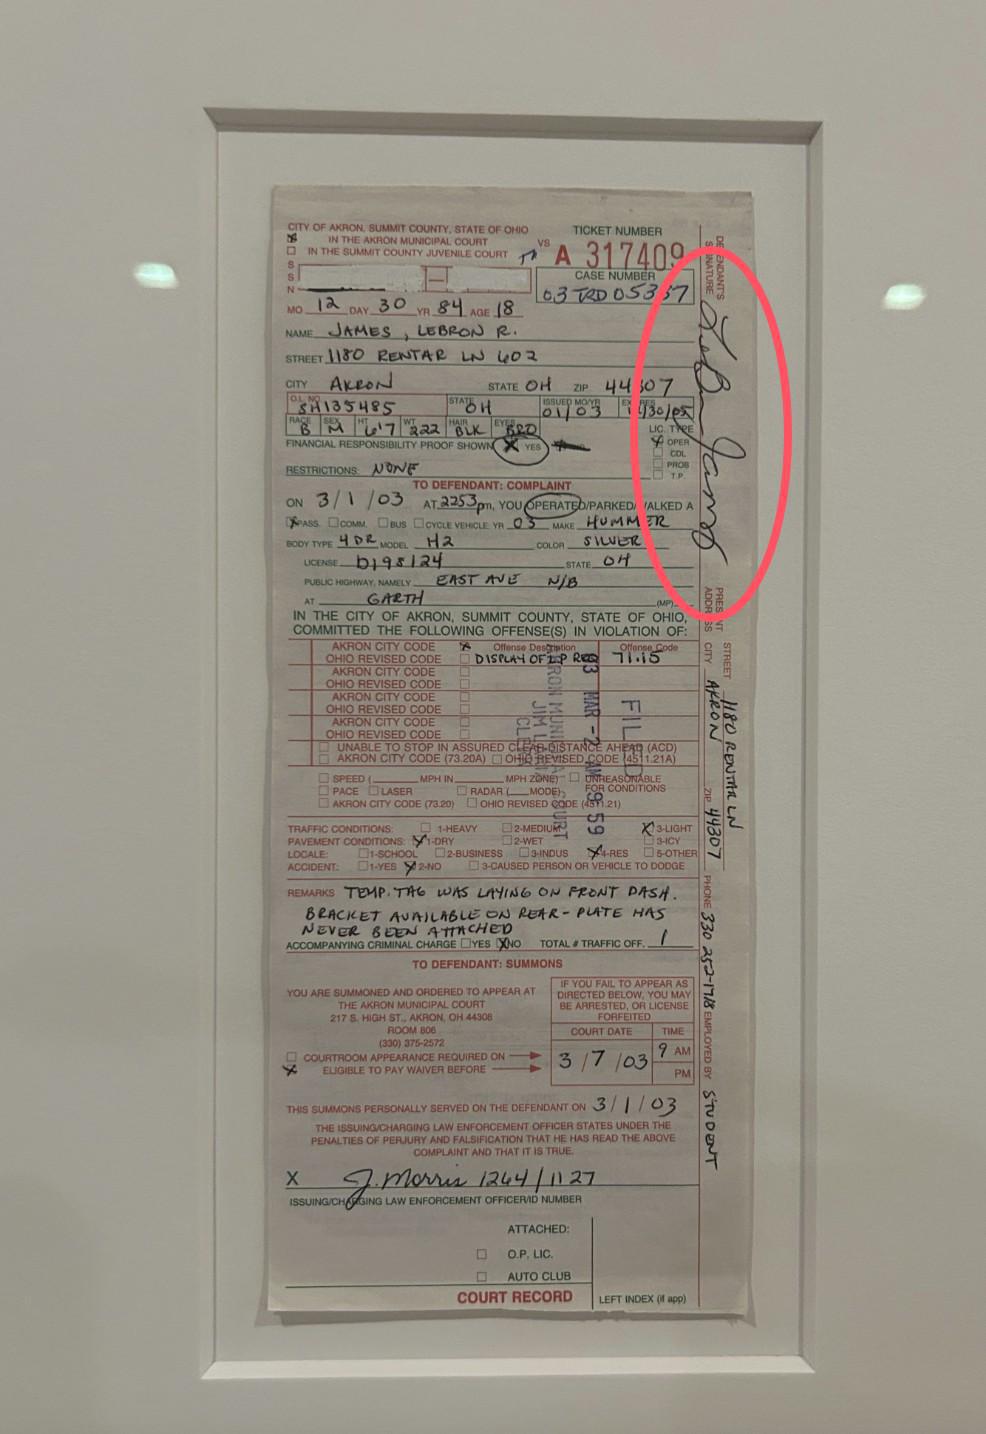 CITY OF AKRON, SUMMIT COUNTY, STATE OF OHIO
IN THE AKRON MUNICIPAL COURT
IN THE SUMMIT COUNTY JUVENILE COURT
VS
TICKET NUMBER
A 317409
S S N
CASE NUMBER
03 TRD 05337
MO. 12 DAY 30 YR 84 AGE 18
NAME JAMES, LEBRON R.
STREET 1180 RENTAR LN 602
CITY AKRON STATE OH ZIP 44307
O.L. NO. SH135485 STATE OH ISSUED MO/YR 01/03 EXPIRES 12/30/05
RACE B SEX M HT 6'7 WT 222 HAIR BLK EYES BRO
LIC. TYPE
OPER
CDL
PROB
T.P.
FINANCIAL RESPONSIBILITY PROOF SHOWN X YES
RESTRICTIONS: NONE
TO DEFENDANT: COMPLAINT
ON 3/1/03 AT 2253 pm, YOU OPERATED/PARKED/WALKED A
PASS. COMM. BUS CYCLE VEHICLE YR 03 MAKE HUMMER
BODY TYPE 4DR MODEL H2 COLOR SILVER
LICENSE D198124 STATE OH
PUBLIC HIGHWAY, NAMELY EAST AVE N/B
AT GARTH (MP)
IN THE CITY OF AKRON, SUMMIT COUNTY, STATE OF OHIO,
COMMITTED THE FOLLOWING OFFENSE(S) IN VIOLATION OF:
AKRON CITY CODE X Offense Description Offense Code
OHIO REVISED CODE DISPLAY OF LP REQ 71.15
AKRON CITY CODE
OHIO REVISED CODE
AKRON CITY CODE
OHIO REVISED CODE
AKRON CITY CODE
OHIO REVISED CODE
UNABLE TO STOP IN ASSURED CLEAR DISTANCE AHEAD (ACD)
AKRON CITY CODE (73.20A) OHIO REVISED CODE (4511.21A)
FILED
03 MAR -2 AM 9:59
AKRON MUNICIPAL COURT
JIM
CLERK
SPEED ( MPH IN MPH ZONE) UNREASONABLE
PACE LASER RADAR ( MODE) FOR CONDITIONS
AKRON CITY CODE (73.20) OHIO REVISED CODE (4511.21)
TRAFFIC CONDITIONS: 1-HEAVY 2-MEDIUM X 3-LIGHT
PAVEMENT CONDITIONS: X 1-DRY 2-WET 3-ICY
LOCALE: 1-SCHOOL 2-BUSINESS 3-INDUS X 4-RES 5-OTHER
ACCIDENT: 1-YES X 2-NO 3-CAUSED PERSON OR VEHICLE TO DODGE
REMARKS TEMP. TAG WAS LAYING ON FRONT DASH.
BRACKET AVAILABLE ON REAR - PLATE HAS
NEVER BEEN ATTACHED
ACCOMPANYING CRIMINAL CHARGE YES X NO TOTAL # TRAFFIC OFF. 1
TO DEFENDANT: SUMMONS
YOU ARE SUMMONED AND ORDERED TO APPEAR AT
THE AKRON MUNICIPAL COURT
217 S. HIGH ST., AKRON, OH 44308
ROOM 806
(330) 375-2572
IF YOU FAIL TO APPEAR AS
DIRECTED BELOW, YOU MAY
BE ARRESTED, OR LICENSE
FORFEITED
COURT DATE TIME
3/7/03 9 AM
PM
COURTROOM APPEARANCE REQUIRED ON
X ELIGIBLE TO PAY WAIVER BEFORE
THIS SUMMONS PERSONALLY SERVED ON THE DEFENDANT ON 3/1/03
THE ISSUING/CHARGING LAW ENFORCEMENT OFFICER STATES UNDER THE
PENALTIES OF PERJURY AND FALSIFICATION THAT HE HAS READ THE ABOVE
COMPLAINT AND THAT IT IS TRUE.
X J. Morris 1264/1127
ISSUING/CHARGING LAW ENFORCEMENT OFFICER/ID NUMBER
ATTACHED:
O.P. LIC.
AUTO CLUB
COURT RECORD
LEFT INDEX (if app)
DEFENDANT'S SIGNATURE LeBron James
PRESENT ADDRESS STREET 1180 RENTAR LN
CITY AKRON ZIP 44307 PHONE 330 252-1718 EMPLOYED BY STUDENT